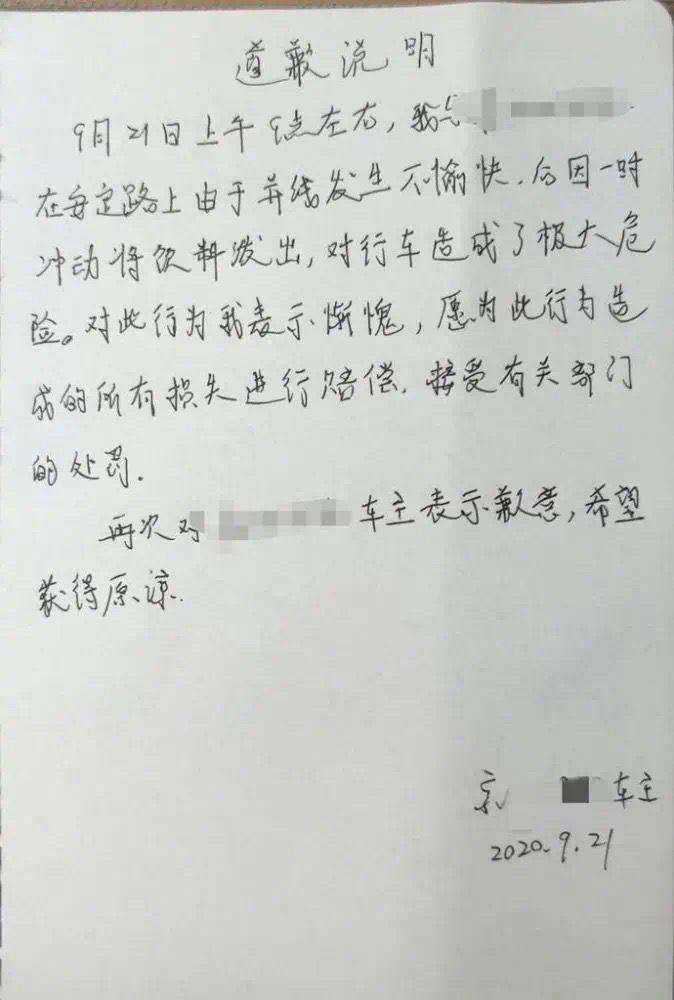 道歉说明
9月21日上午9点左右，我与
在安定路上由于并线发生不愉快.后因一时
冲动将饮料泼出，对行车造成了极大危
险。对此行为我表示惭愧，愿为此行为造
成的所有损失进行赔偿.接受有关部门
的处罚.
再次对 车主表示歉意，希望
获得原谅.
京 车主
2020.9.21